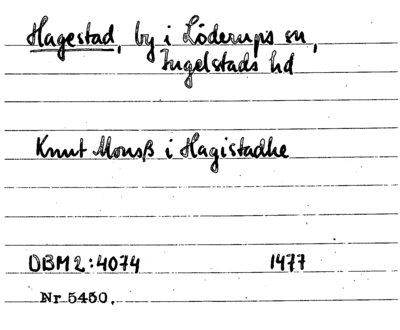 Hagestad, by i Löderups sn,
Ingelstads hd
Knut Monsß i Hagistadhe
DBM2:4074 1477
Nr 5450.